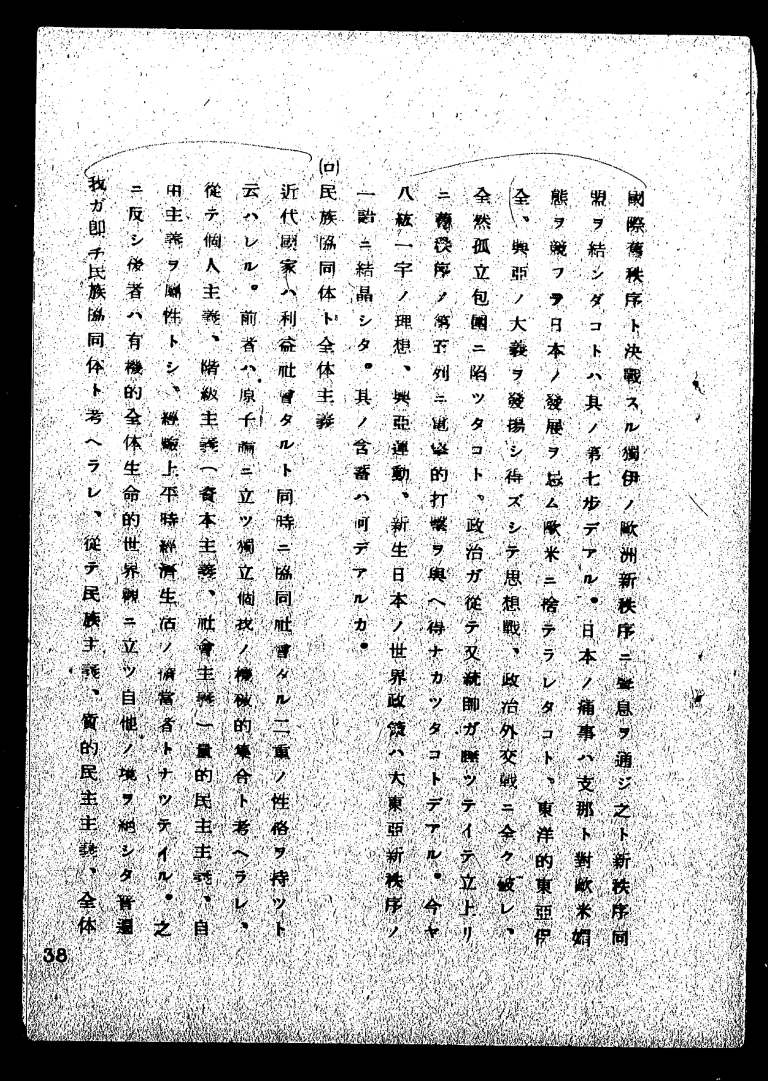 國際舊秩序ト決戰スル獨伊ノ歐洲新秩序ニ聲息ヲ通ジ之ト新秩序同
盟ヲ結シダコトハ其ノ第七步デアル。日本ノ痛事ハ支那ト對歐米媚
態ヲ競フヲ日本ノ發展ヲ忌ム歐米ニ捨テラレタコト、東洋的東亞保
全、興亞ノ大義ヲ發揚シ得ズシテ思想戰、政治外交戰ニ全ク破レ、
全然孤立包圍ニ陷ツタコト、政治ガ從テ又統帥ガ睡ツテイテ立上リ
ニ舊秩序ノ第五列ニ電擊的打壞ヲ與ヘ得ナカツタコトデアル。今ヤ
八紘一宇ノ理想、興亞運動、新生日本ノ世界政策ハ大東亞新秩序ノ
一語ニ結晶シタ。其ノ含蓄ハ何デアルカ。
(ロ)民族協同体ト全体主義
近代國家ハ利益社會タルト同時ニ協同社會タル二重ノ性格ヲ持ツト
云ハレル。前者ハ原子論ニ立ツ獨立個我ノ機械的集合ト考ヘラレ、
從テ個人主義、階級主義(資本主義、社會主義)量的民主主義、自
由主義ヲ屬性トシ、經驗上平時經濟生活ノ擔當者トナツテイル。之
ニ反シ後者ハ有機的全体生命的世界觀ニ立ツ自他ノ境ヲ絕シタ普遍
我ガ卽チ民族協同体ト考ヘラレ、從テ民族主義、質的民主主義、全体
38